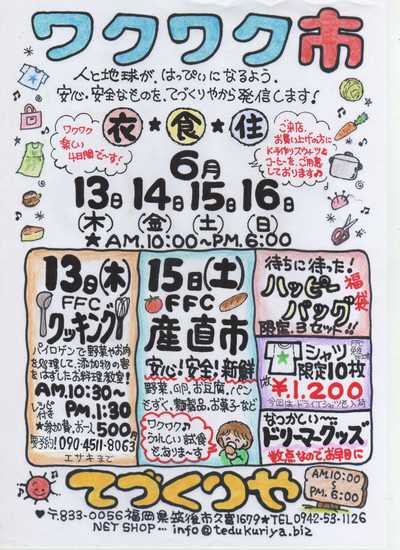 ワクワク市
人と地球が、はっぴぃになるよう、
安心・安全なものを、てづくりやから発信します!
ワクワク
楽しい
4日間で〜す!
衣★食★住
ご来店、
お買い上げの方に
K手作りスウィーツ&
コーヒーを、ご用意
しております♪
6月
13日 14日 15日 16日
(木) (金) (土) (日)
★A.M.10:00〜P.M.6:00
13日(木)
FFC
クッキング
パイロゲンで野菜やお肉
を処理して、添加物の害
をはずしたお料理教室!
A.M.10:30〜
P.M.1:30
レシピ付き
★参加費、お一人500円
090-4511-8063
エサキまで
15日(土)
FFC
産直市
安心!安全!新鮮
野菜、卵、お豆腐、パン
もずく、麺製品、お菓子など
ワクワク♪
うれしい試食
もありま〜す
待ちに待った!
ハッピー
バッグ
福袋
限定、3セット!!
Tシャツ
限定10枚
1枚¥1,200
今回は、ドライTシャツも入荷
なつかし〜い
ドリーマーグッズ
数点なのでお早目に
てづくりや
A.M.10:00
P.M.6:00
♥〒833-0056福岡県筑後市久富1679★TEL0942-53-1126
NET SHOP… info@tedukuriya.biz